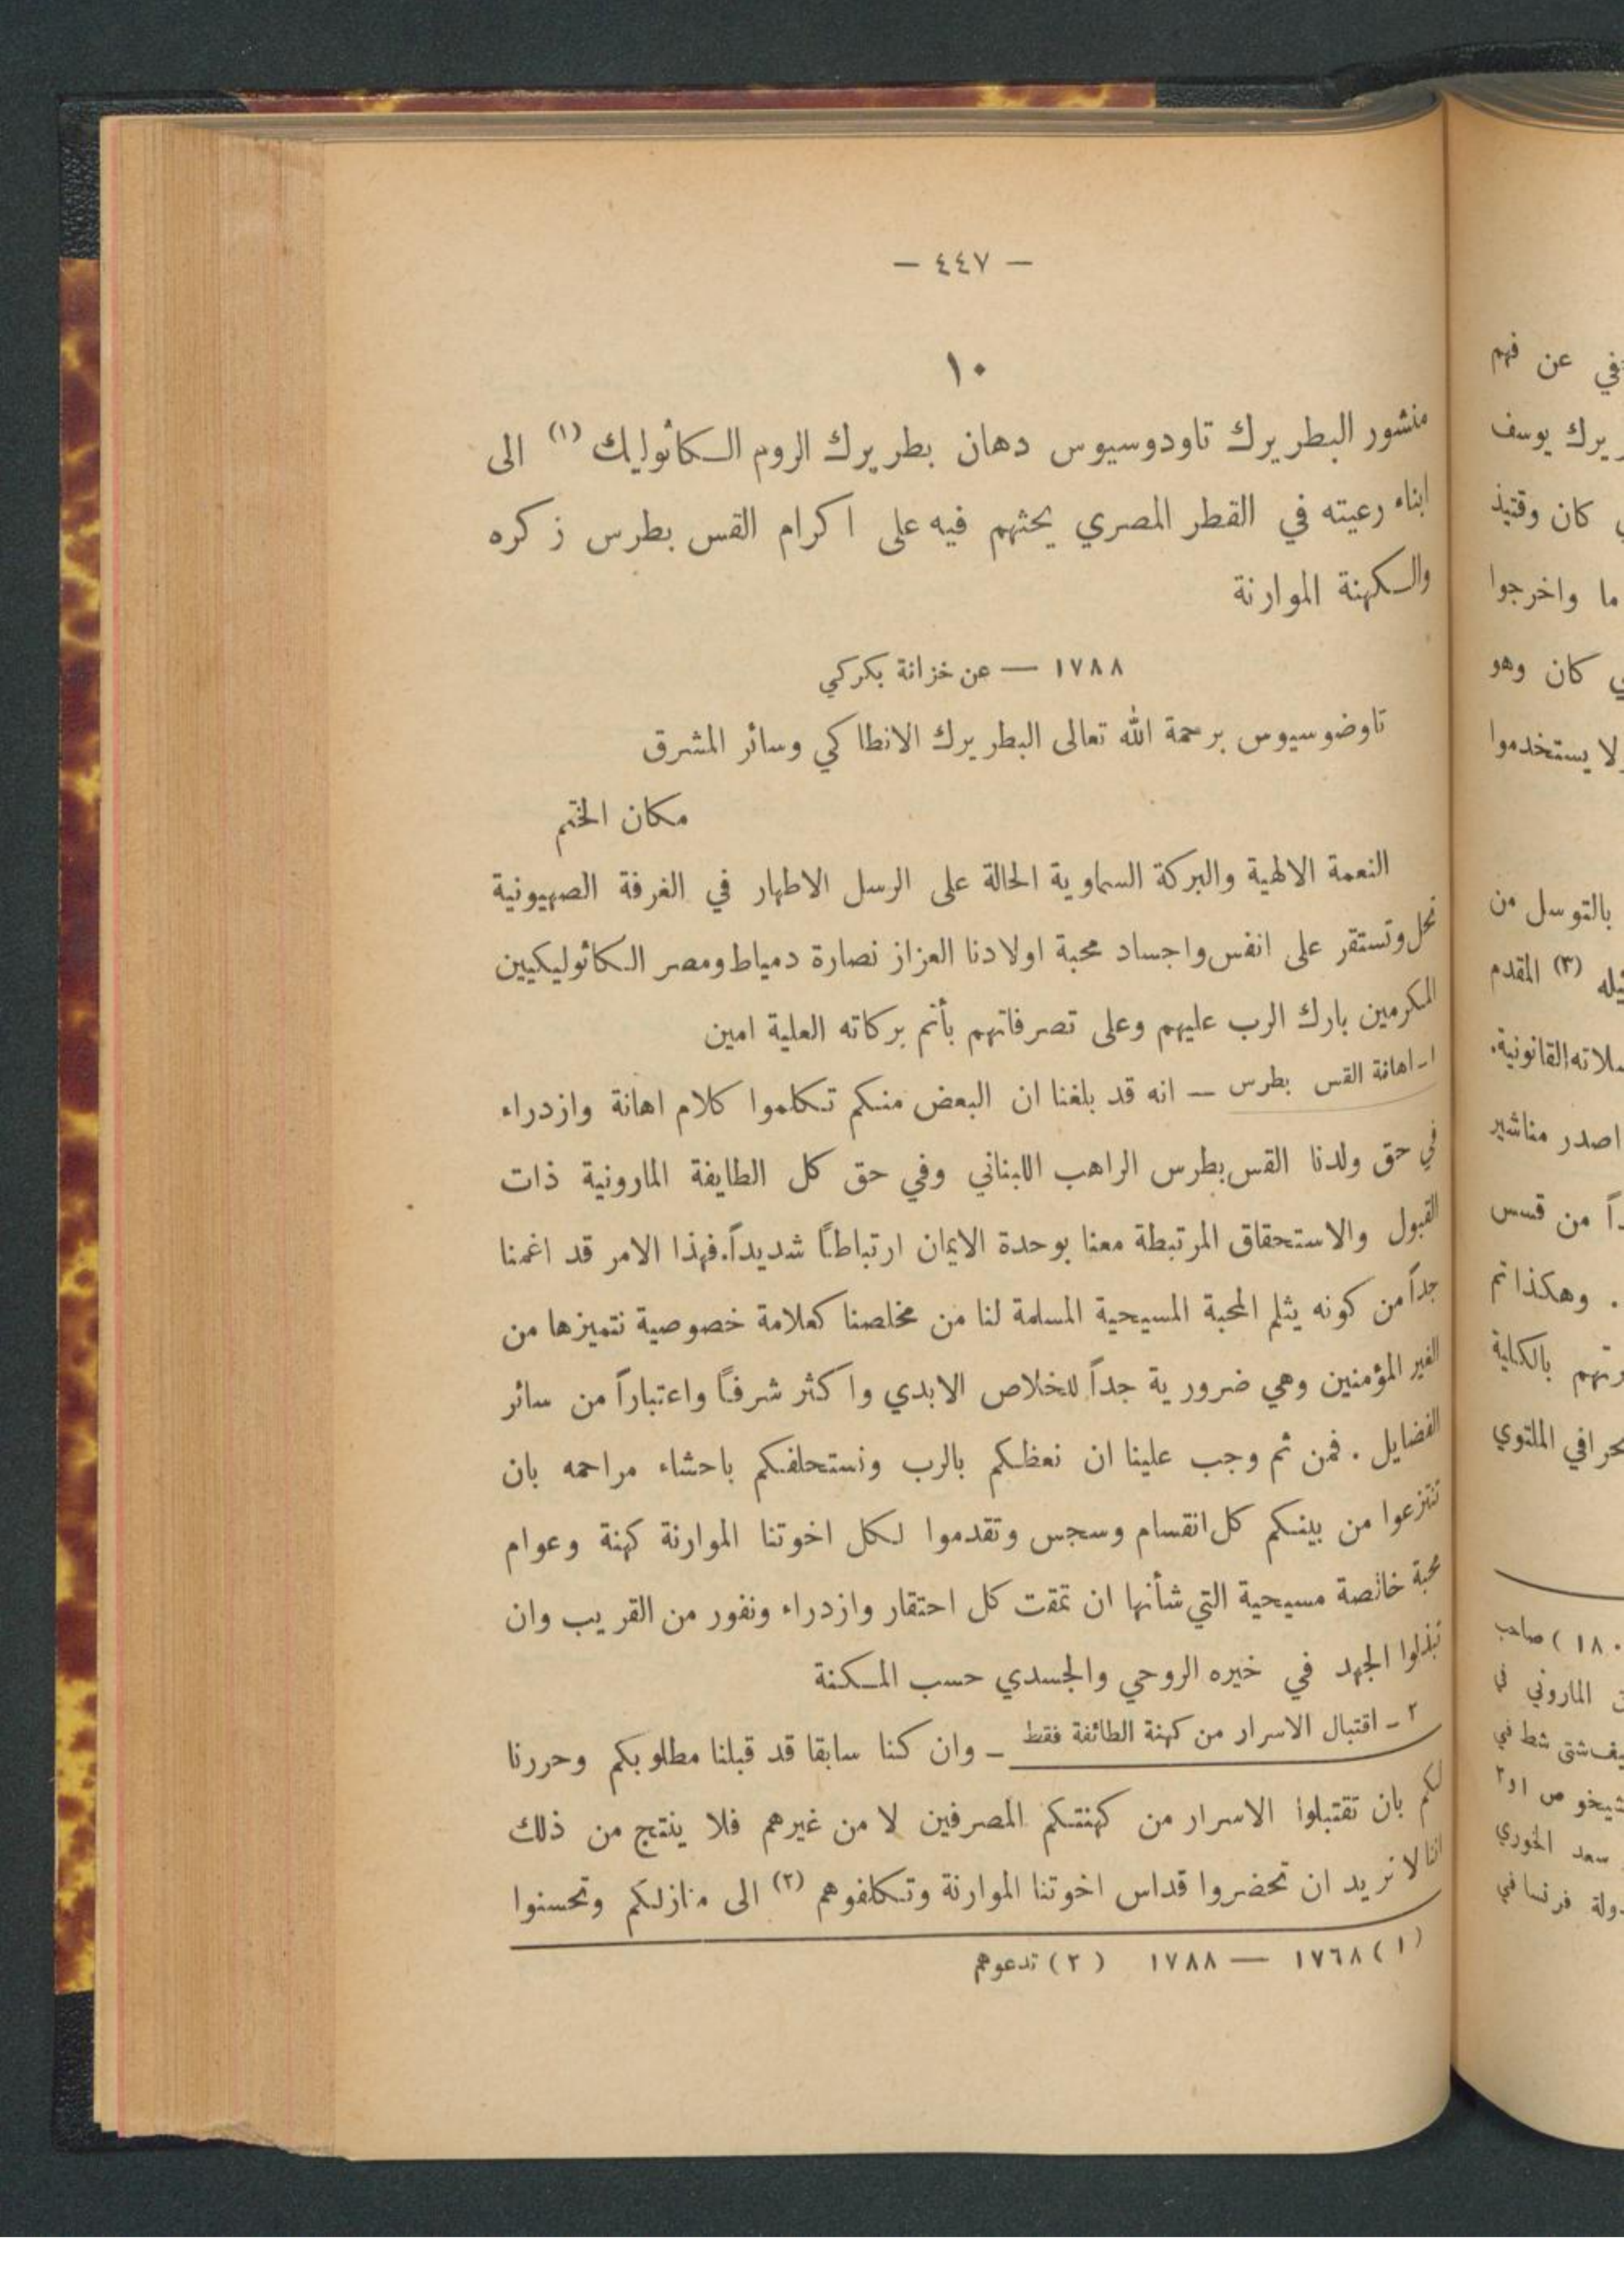 — ٤٤٧ —
١٠
منشور البطريرك تاودوسيوس دهان بطريرك الروم الكاثوليك (١) الى
ابناء رعيته في القطر المصري يحثهم فيه على اكرام القس بطرس زكره
والكهنة الموارنة
١٧٨٨ — عن خزانة بكركي
تاوضوسيوس برحمة الله تعالى البطريرك الانطاكي وسائر المشرق
مكان الختم
النعمة الالهية والبركة السماوية الحالة على الرسل الاطهار في الغرفة الصهيونية
تحل وتستقر على انفس واجساد محبة اولادنا العزاز نصارة دمياط ومصر الكاثوليكيين
المكرمين بارك الرب عليهم وعلى تصرفاتهم بأتم بركاته العلية امين
١ - اهانة القس بطرس — انه قد بلغنا ان البعض منكم تكلموا كلام اهانة وازدراء
في حق ولدنا القس بطرس الراهب اللبناني وفي حق كل الطايفة المارونية ذات
القبول والاستحقاق المرتبطة معنا بوحدة الايمان ارتباطاً شديداً. فهذا الامر قد اغمنا
جداً من كونه يثلم المحبة المسيحية المسلمة لنا من مخلصنا كعلامة خصوصية نتميزها من
الغير المؤمنين وهي ضرورية جداً للخلاص الابدي واكثر شرفاً واعتباراً من سائر
الفضايل . فمن ثم وجب علينا ان نعظكم بالرب ونستحلفكم باحشاء مراحمه بان
تنتزعوا من بينكم كل انقسام وسجس وتقدموا لكل اخوتنا الموارنة كهنة وعوام
محبة خالصة مسيحية التي شأنها ان تمقت كل احتقار وازدراء ونفور من القريب وان
تبذلوا الجهد في خيره الروحي والجسدي حسب المكنة
٢ - اقتبال الاسرار من كهنة الطائفة فقط — وان كنا سابقا قد قبلنا مطلوبكم وحررنا
لكم بان تقتبلوا الاسرار من كهنتكم المصرفين لا من غيرهم فلا ينتج من ذلك
اننا لا نريد ان تحضروا قداس اخوتنا الموارنة وتكلفوهم (٢) الى منازلكم وتحسنوا
(١) ١٧٦٨ — ١٧٨٨ (٢) تدعوهم
في عن فهم
يرك يوسف
كان وقتيذ
ما واخرجوا
كان وهو
لا يستخدموا
بالتوسل من
(٣) المقدم
القانونية.
اصدر مناشير
من قسس
. وهكذا تم
بالكلية
الملتوي
١٨٠ ) صاحب
الماروني في
شتى شط في
شيخو ص ١ و ٢
سعد الخوري
دولة فرنسا في